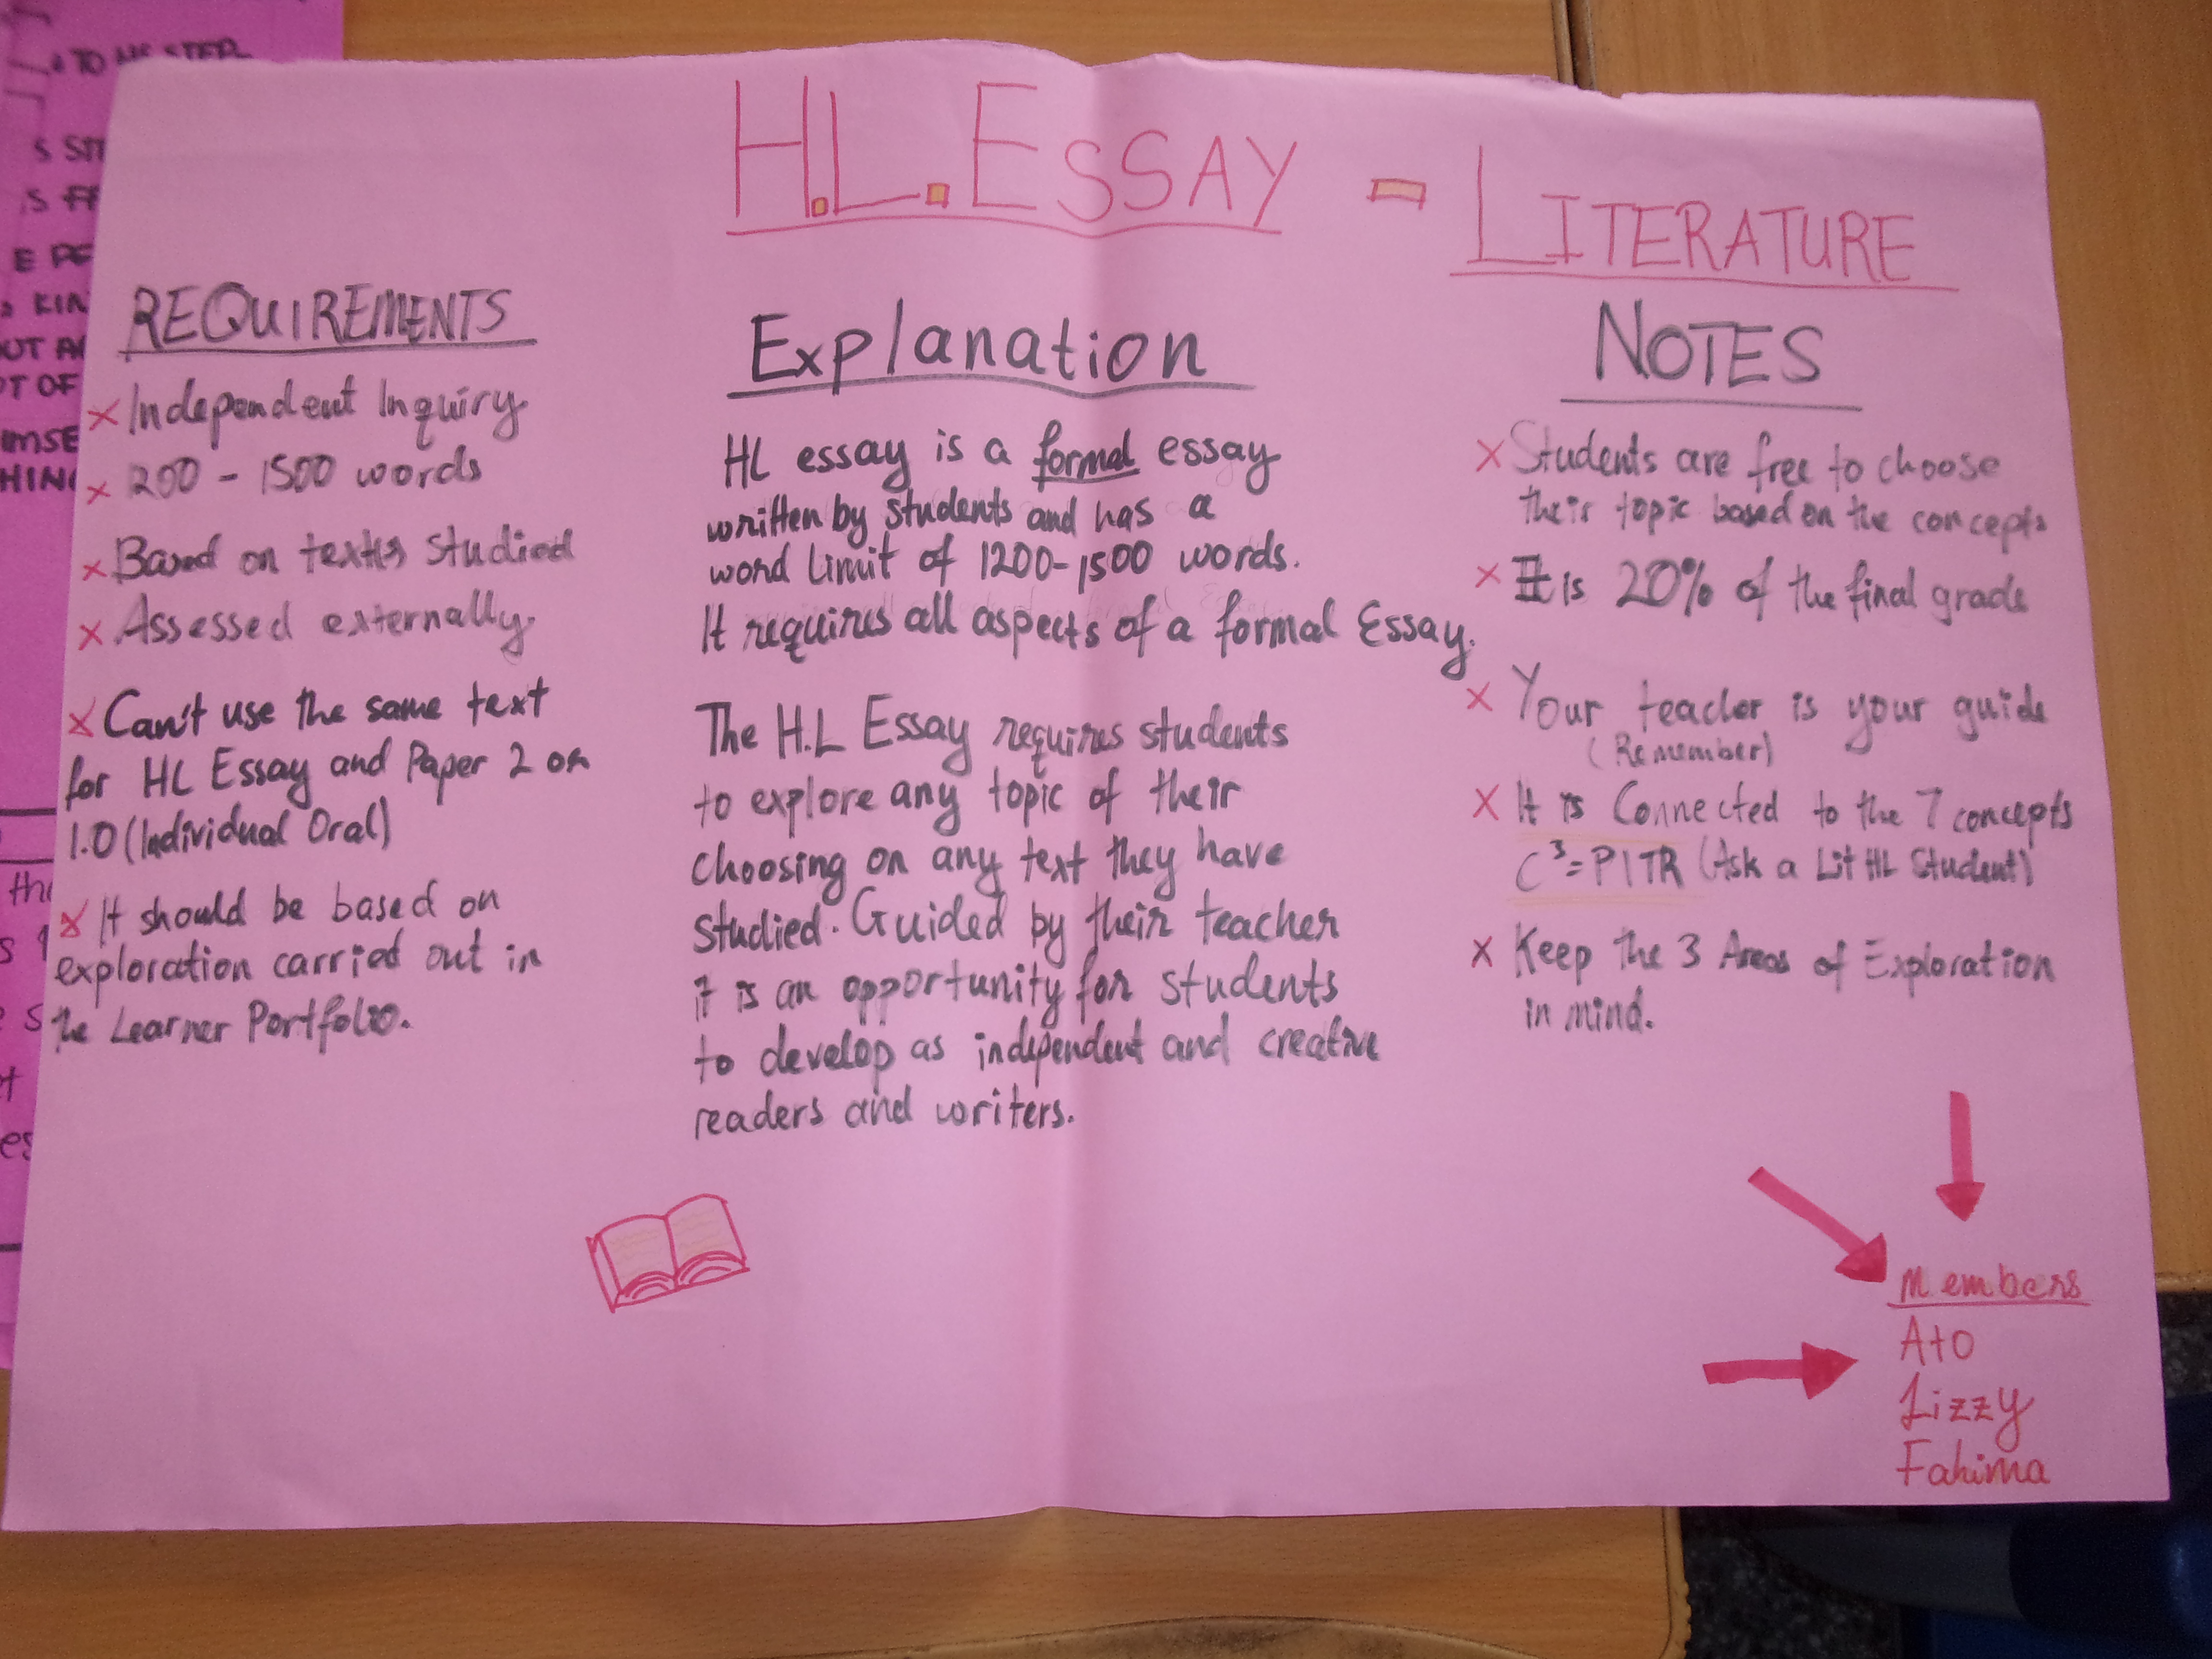 H.L. ESSAY - LITERATURE
REQUIREMENTS
x Independent Inquiry
x 1200 - 1500 words
x Based on texts studied
x Assessed externally.
x Can't use the same text
for HL Essay and Paper 2 or
I.O (Individual Oral)
x It should be based on
exploration carried out in
the Learner Portfolio.
Explanation
HL essay is a formal essay
written by students and has a
word limit of 1200-1500 words.
It requires all aspects of a formal Essay.
The H.L Essay requires students
to explore any topic of their
choosing on any text they have
studied. Guided by their teacher
it is an opportunity for students
to develop as independent and creative
readers and writers.
NOTES
x Students are free to choose
their topic based on the concepts
x It is 20% of the final grade
x Your teacher is your guide
(Remember)
x It is Connected to the 7 concepts
C³=PITR (Ask a Lit HL Student)
x Keep the 3 Areas of Exploration
in mind.
Members
Ato
Lizzy
Fahima
TO
STEP
KIN
OT OF